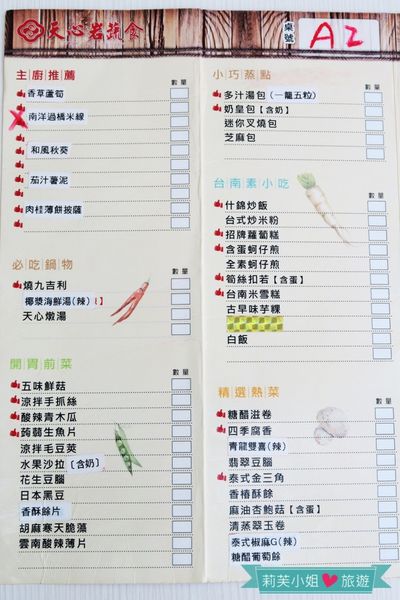 天心岩蔬食
桌號
A2
主廚推薦
數量
香草蘆筍
南洋過橋米線
和風秋葵
茄汁薯泥
肉桂薄餅披薩
必吃鍋物
數量
燒九吉利
椰漿海鮮湯(辣)】
天心燉湯
開胃前菜
數量
五味鮮菇
涼拌手抓絲
酸辣青木瓜
蒟蒻生魚片
涼拌毛豆莢
水果沙拉〔含奶〕
花生豆腐
日本黑豆
香酥餘片
胡麻寒天脆藻
雲南酸辣薄片
小巧蒸點
數量
多汁湯包(一籠五粒)
奶皇包【含奶】
迷你叉燒包
芝麻包
台南素小吃
數量
什錦炒飯
台式炒米粉
招牌蘿蔔糕
含蛋蚵仔煎
全素蚵仔煎
筍絲扣若【含蛋】
台南米雪糕
古早味芋粿
白飯
精選熱菜
數量
糖醋滋卷
四季腐香
青龍雙喜(辣)
翡翠豆腐
泰式金三角
香椿酥餘
麻油杏鮑菇【含蛋】
清蒸翠玉卷
泰式椒麻G(辣)
糖醋葡萄餘
莉芙小姐♥旅遊